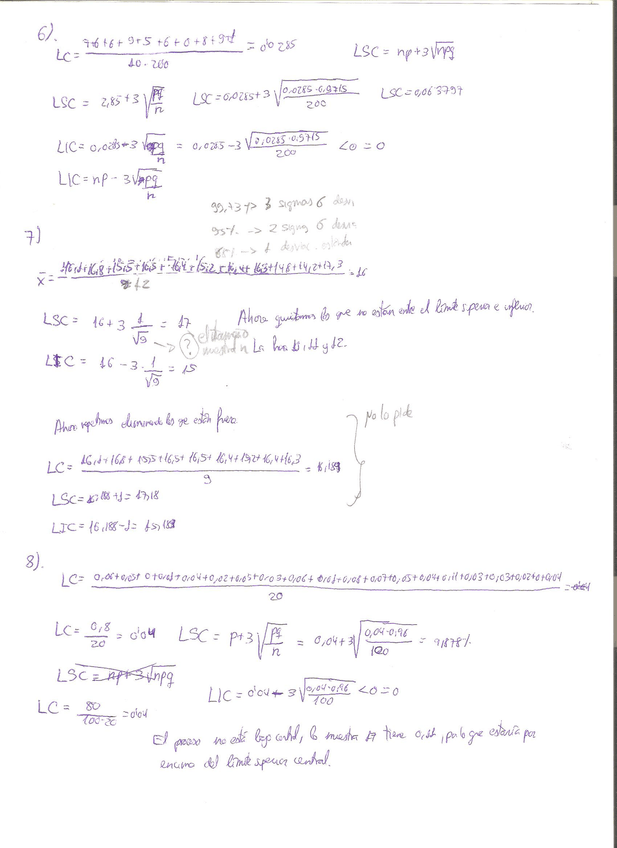 6).
LC = 7+6+6+9+5+6+0+8+9+1 / 10·200 = 0'0285
LSC = np+3√npq
LSC = 2,85+3√pq/n
LSC = 0,0285+3√0,0285·0,9715/200
LSC = 0,063797
LIC = 0,0285-3√pq/n = 0,0285-3√0,0285·0,9715/200 <0 = 0
LIC = np-3√npq/n
99,73 -> 3 sigmas 6 desv
95% -> 2 sigmas 6 desv
68% -> 1 desviac. estandar
7)
x̄ = 16,1+16,8+15,5+16,5+16,5+16,4+15,2+16,4+16,3+14,8+14,2+17,3 / 12 = 16
LSC = 16+3 1/√9 = 17
Ahora quitamos los que no están entre el límite superior e inferior.
? el tamaño
muestra n
La hora 10, 11 y 12.
LIC = 16-3·1/√9 = 15
Ahora repetimos eliminando los que están fuera
No lo pide
LC = 16,1+16,8+15,5+16,5+16,5+16,4+15,2+16,4+16,3 / 9 = 16,188
LSC = 16,188+1 = 17,18
LIC = 16,188-1 = 15,188
8).
LC = 0,06+0,05+0+0,01+0,04+0,02+0,05+0,03+0,06+0,01+0,08+0,07+0,05+0,04+0,11+0,03+0,03+0,02+0+0,04 / 20 = 0'04
LC = 0,8/20 = 0'04
LSC = p+3√pq/n = 0,04+3√0,04·0,96/100 = 9,878%
LSC = np+3√npq
LC = 80/100·20 = 0'04
LIC = 0'04-3√0,04·0,96/100 <0 = 0
El proceso no está bajo control, la muestra tiene 0,11, por lo que estaría por
encima del límite superior central.